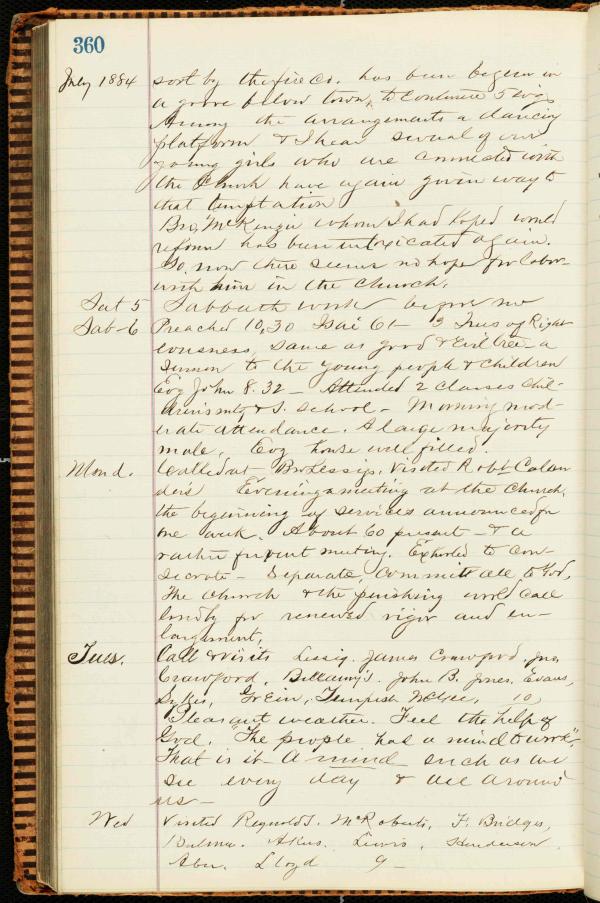 360
July 1884 sort by the fire Co. has been begun in
a grove below town, to continue 5 evigs
Among the arrangements a dancing
platform & I hear several of our
young girls who are connected with
the Church have again given way to
that temptation
Bro. McKenzie whom I had hoped would
reform has been intoxicated again.
So now there seems no hope for labor-
with him in the Church.
Sat 5 Sabbath work before me
Sab-6 Preached 10,30 Isai 61- 3 Trees of Right
eousness, Same as good & Evil tree - a
sermon to the young people & children
Evg John 8.32 - Attended 2 classes chil-
drens mtg & S. School - Morning mod-
erate attendance. A large majority
male. Evg house well filled.
Mond. Called at Bro Lessys. Visited Robt Calan
ders Evening a meeting at the Church,
the beginning of services announced for
one week. About 60 present - & a
rather fervent meeting. Exhorted to con-
secrate - Separate, Committ all to God,
The Church & the perishing world call
loudly for renewed vigor and en-
largement,
Tues. Call & visits Lessig. James Crawford, Jno
Crawford, Bellamy's. John B. Jones, Evans,
Sykes, Grein, Tempest 10,
Pleasant weather. Feel the help of
God. "The people had a mind to work",
That is it - A mind such as we
see every day & all around
us -
Wed Visited Reynolds. McRoberts, F. Bridges,
Akus. Lewis, Henderson
Aber. Lloyd 9 -